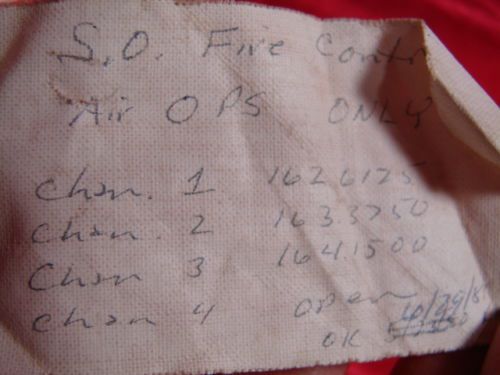 S.O. Fire Contr
Air OPS ONLY
Chan. 1 162.6125
Chan. 2 163.3750
Chan 3 164.1500
Chan 4 open
10/29/8
OK